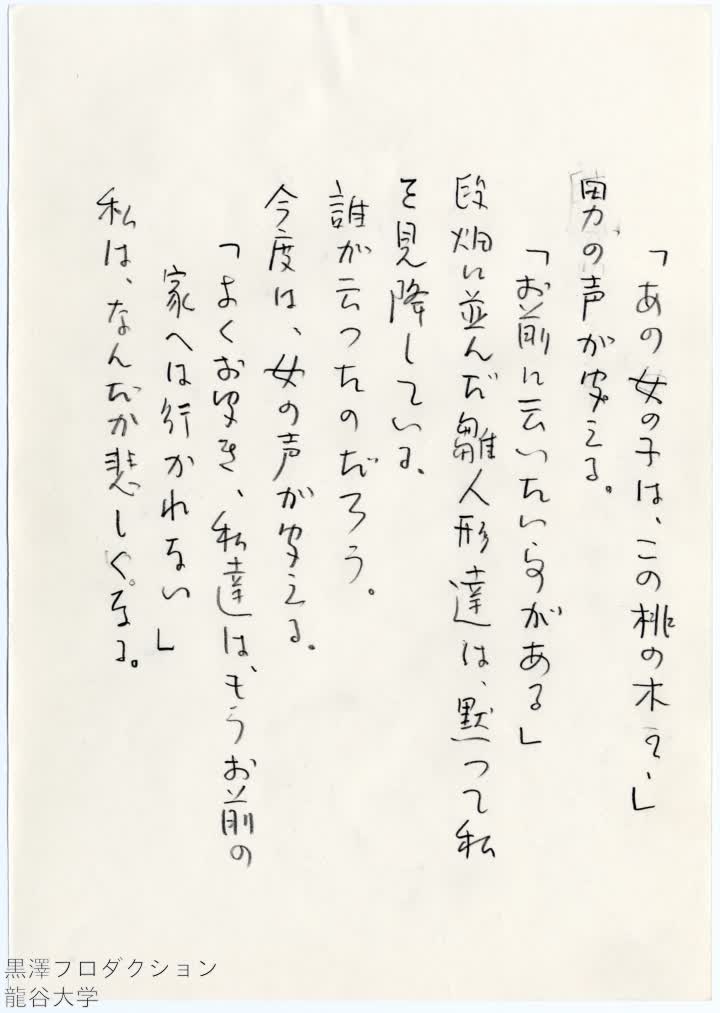 「あの女の子は、この桃の木の、」
男の声が変える。
「お前に云いたい事がある」
段畑に並んだ雛人形達は、黙って私
を見降している、
誰が云つたのだろう。
今度は、女の声が変える。
「よくお変き、私達は、もうお前の
家へは行かれない」
私は、なんだか悲しくなる。
黒澤プロダクション
龍谷大学